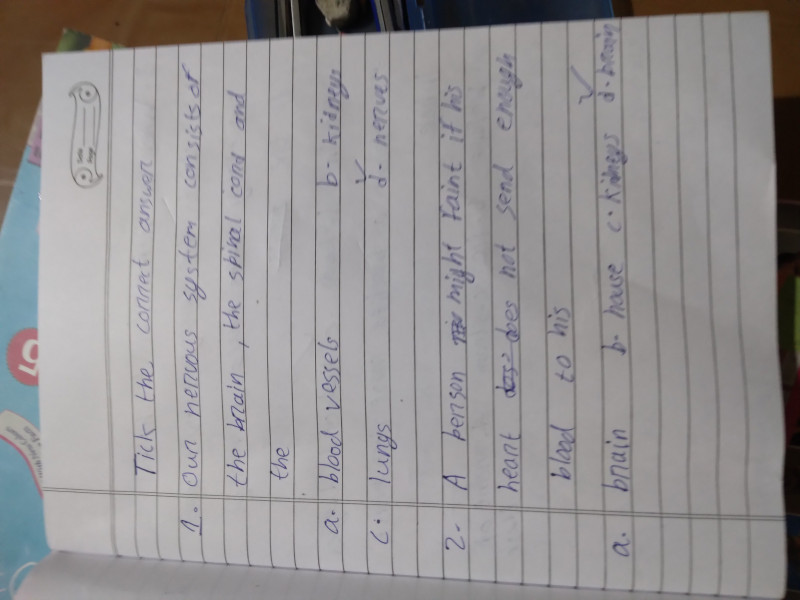 Tick the correct answer
1. Our nervous system consists of
the brain, the spinal cord and
the
a. blood vessels b- kidneys
c. lungs d- nerves
2- A person might faint if his
heart does not send enough
blood to his
a. brain b- house c. kidneys d- brain